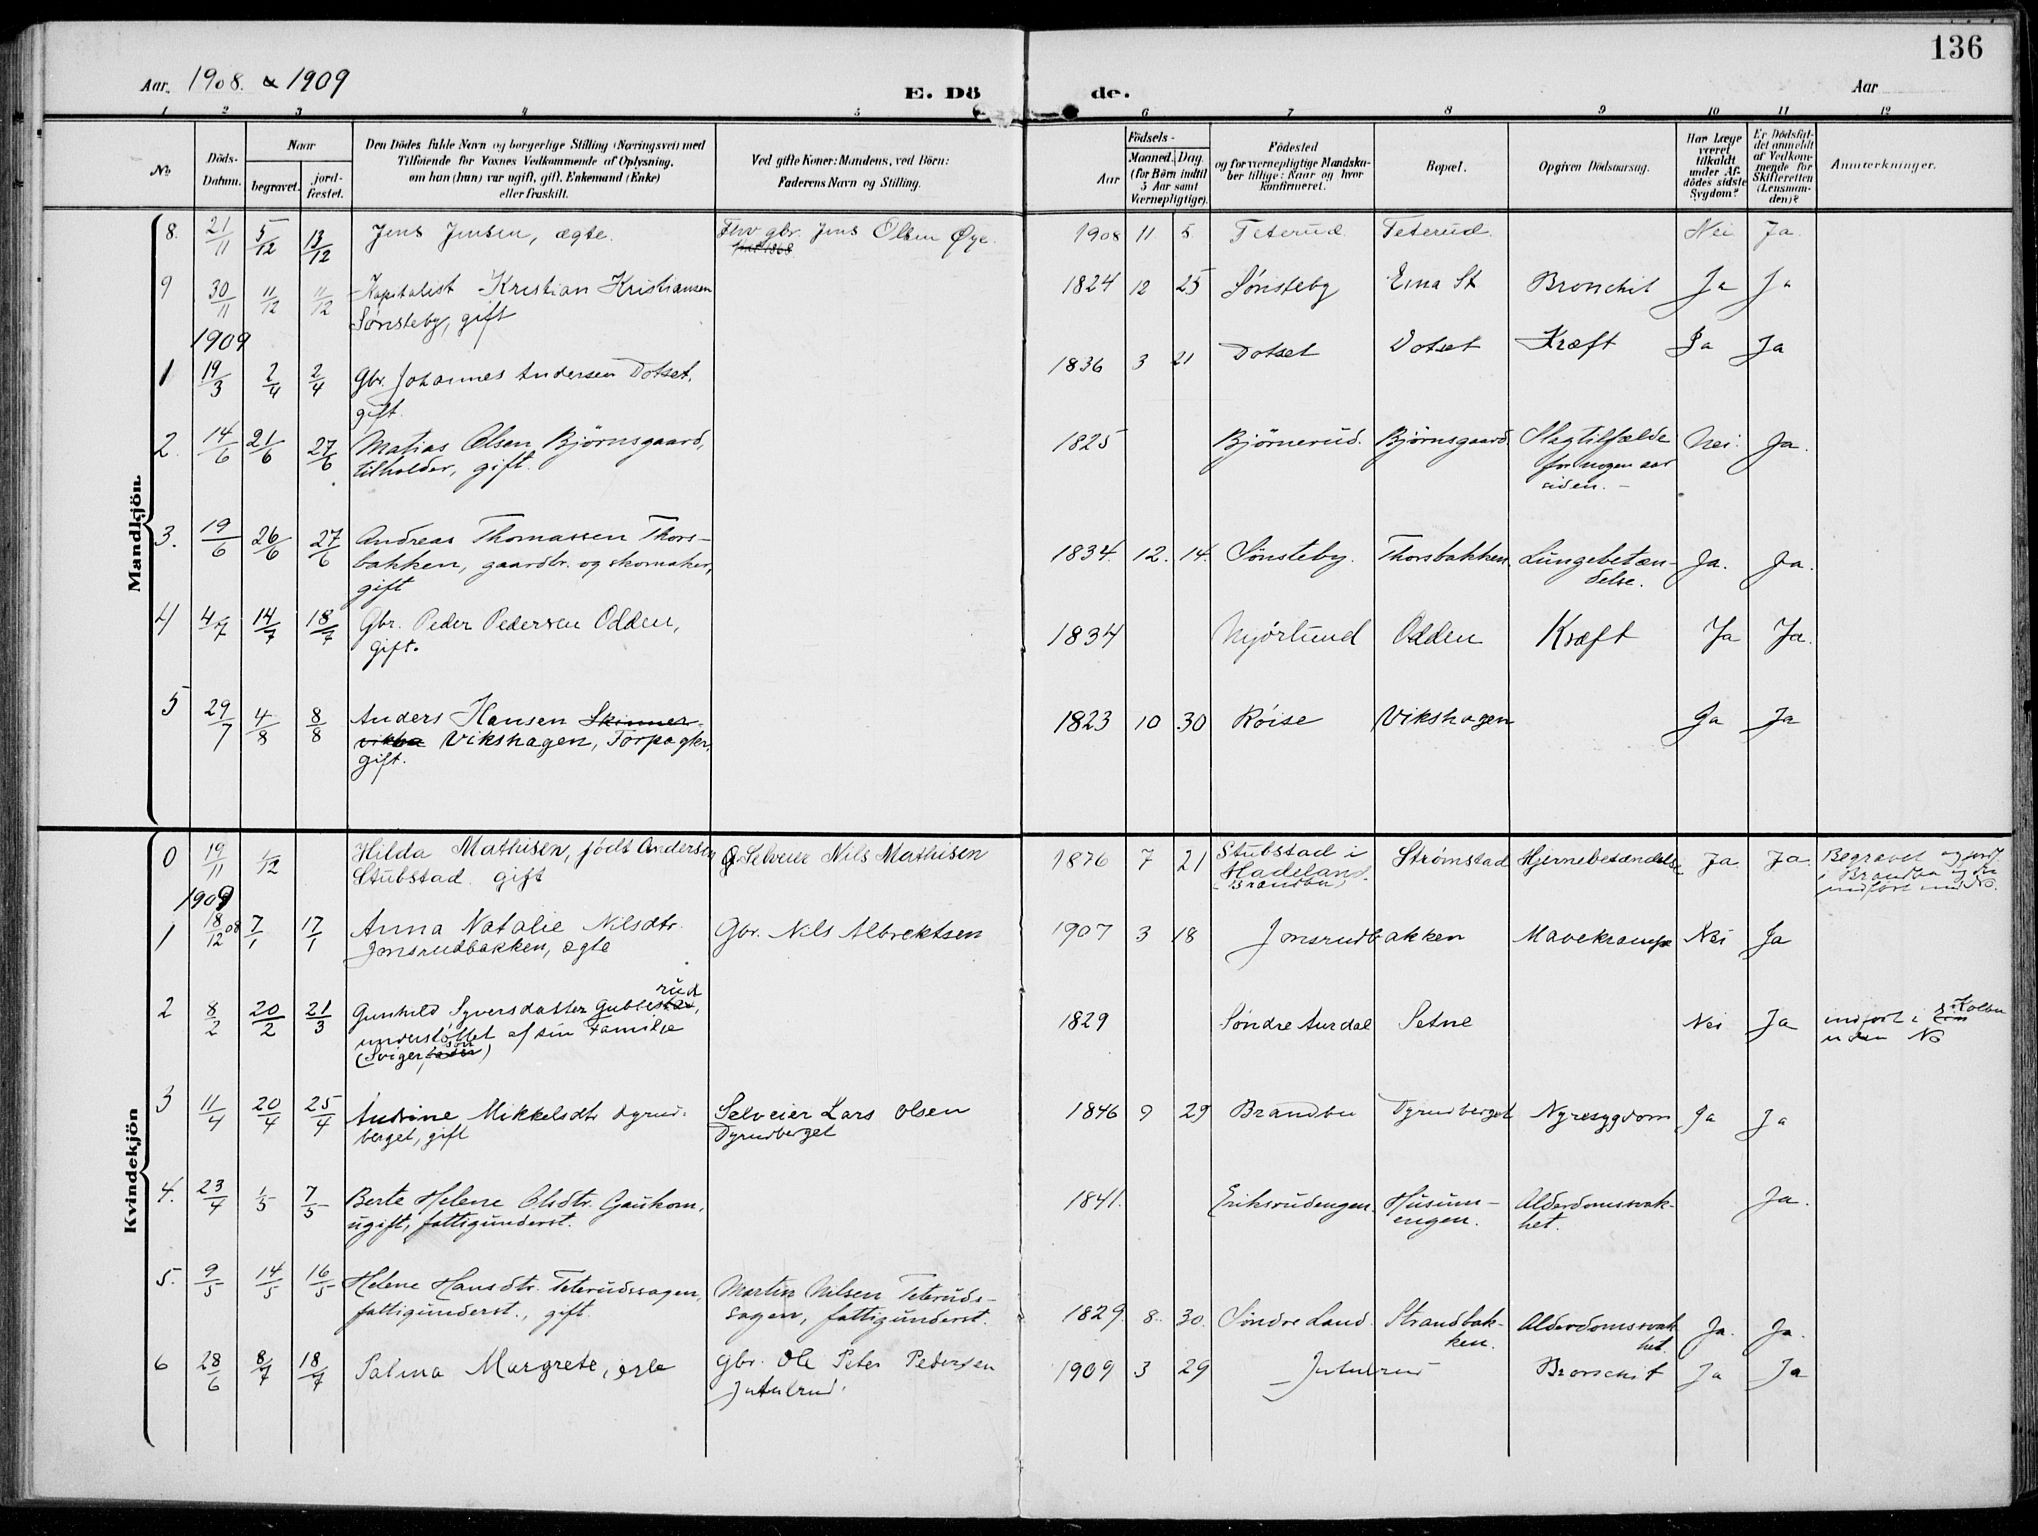 136
Aar. 1908. & 1909
E. Dö
de.
Aar
1 2 3 4 5 6 7 8 9 10 11 12
No.
Döds-Datum.
Naar
begravet.
jord-fæstet.
Den Dödes fulde Navn og borgerlige Stilling (Næringsvei) med
Tilföiende for Voxnes Vedkommende af Oplysning,
om han (hun) var ugift, gift, Enkemand (Enke)
eller fraskilt.
Ved gifte Koner: Mandens, ved Börn:
Faderens Navn og Stilling.
Födsels-
Aar
Maaned. Dag
(for Börn indtil
5 Aar samt
Værnepligtige).
Födested
og for værnepligtige Mandska-
ber tillige: Naar og hvor
konfirmeret.
Bopæl.
Opgiven Dödsaarsag.
Har Læge
været
tilkaldt
under Af-
dödes sidste
Sygdom?
Er Dödsfal-
det anmeldt
af Vedkom-
mende for
Skifteretten
(Lensman-
den)?
Anmærkninger.
Mandkjön.
8. 21/11 5/12 13/12 Jens Jensen, ægte. gbr. Jens Olsen Øye. 1908 11 5 Teterud Teterud Nei Ja.
9 30/11 11/12 11/12 Kapitalist Kristian Kristiansen 1824 12 25 Sønsteby Eina St Bronchit Ja Ja
Sønsteby, gift
1909
1 19/3 2/4 2/4 Gbr. Johannes Andersen Dotset, 1836 3 21 Dotset Dotset Kræft Ja Ja
gift.
2. 14/6 21/6 27/6 Matias Olsen Bjørnsgaard, 1825 Bjørnerud. Bjørnsgaard. Slagtilfælde Nei. Ja.
tilholder, gift. for nogen aar
siden. –
3. 19/6 26/6 27/6 Andreas Thomassen Thors- 1834. 12. 14. Sønsteby. Thorsbakken Lungebetæn- Ja. Ja.
bakken, gaardbr. og skomaker, delse.
gift
4 4/7 14/7 18/7 Gbr. Peder Pedersen Odden, 1834 Odden Kræft Ja Ja.
gift.
5 29/7 4/8 8/8 Anders Hansen Skinner- 1823 10 30 Røise Vikshagen Ja Ja
Vikshagen,
gift.
Kvindekjön
0 19/11 1/12 Hilda Mathisen, født Andersen Selveier Nils Mathisen 1876 7 21 Stubstad i Strømstad Hjernebetændelse Ja Ja Begravet og jordf
Stubstad. gift Hadeland. i Brandbu og
(Brandbu) indført No.
1909
1 18/12 08 7/1 17/1 Anna Natalie Nilsdtr. Gbr. Nils Albrektsen 1907 3 18 Jonsrudbakken Mavekrampe Nei Ja
Jonsrudbakken, ægte
2 8/2 20/2 21/3 Gunhild Syversdatter Gublesrud, 1829 Søndre Aurdal Setne Nei Ja indført i Kolbu
understøttet af sin Familie uden No
(Svigersøn)
3 11/4 20/4 25/4 Andrine Mikkelsdtr Dyrud- Selveier Lars Olsen 1846 9 29 Brandbu Dyrudberget Nyresygdom Ja Ja
berget, gift Dyrudberget
4. 23/4 1/5 7/5 Berte Helene Olsdtr. Gaukom, 1841. Eriksrudengen. Husum- Alderdomssvak- Ja.
ugift, fattigunderst. engen. het.
5. 9/5 14/5 16/5 Helene Hansdtr. Teterudsagen, Martin Nilsen Teteruds- 1829. 8. 30. Søndre Land. Strandbak- Alderdomssvak- Ja. Ja.
fattigunderst., gift. sagen, fattigunderst. ken. het.
6 28/6 8/7 18/7 Palma Margrete, Gbr. Ole Peter Pedersen 1909 3 29 Jutulrud Bronchit Ja Ja
Jutulrud.